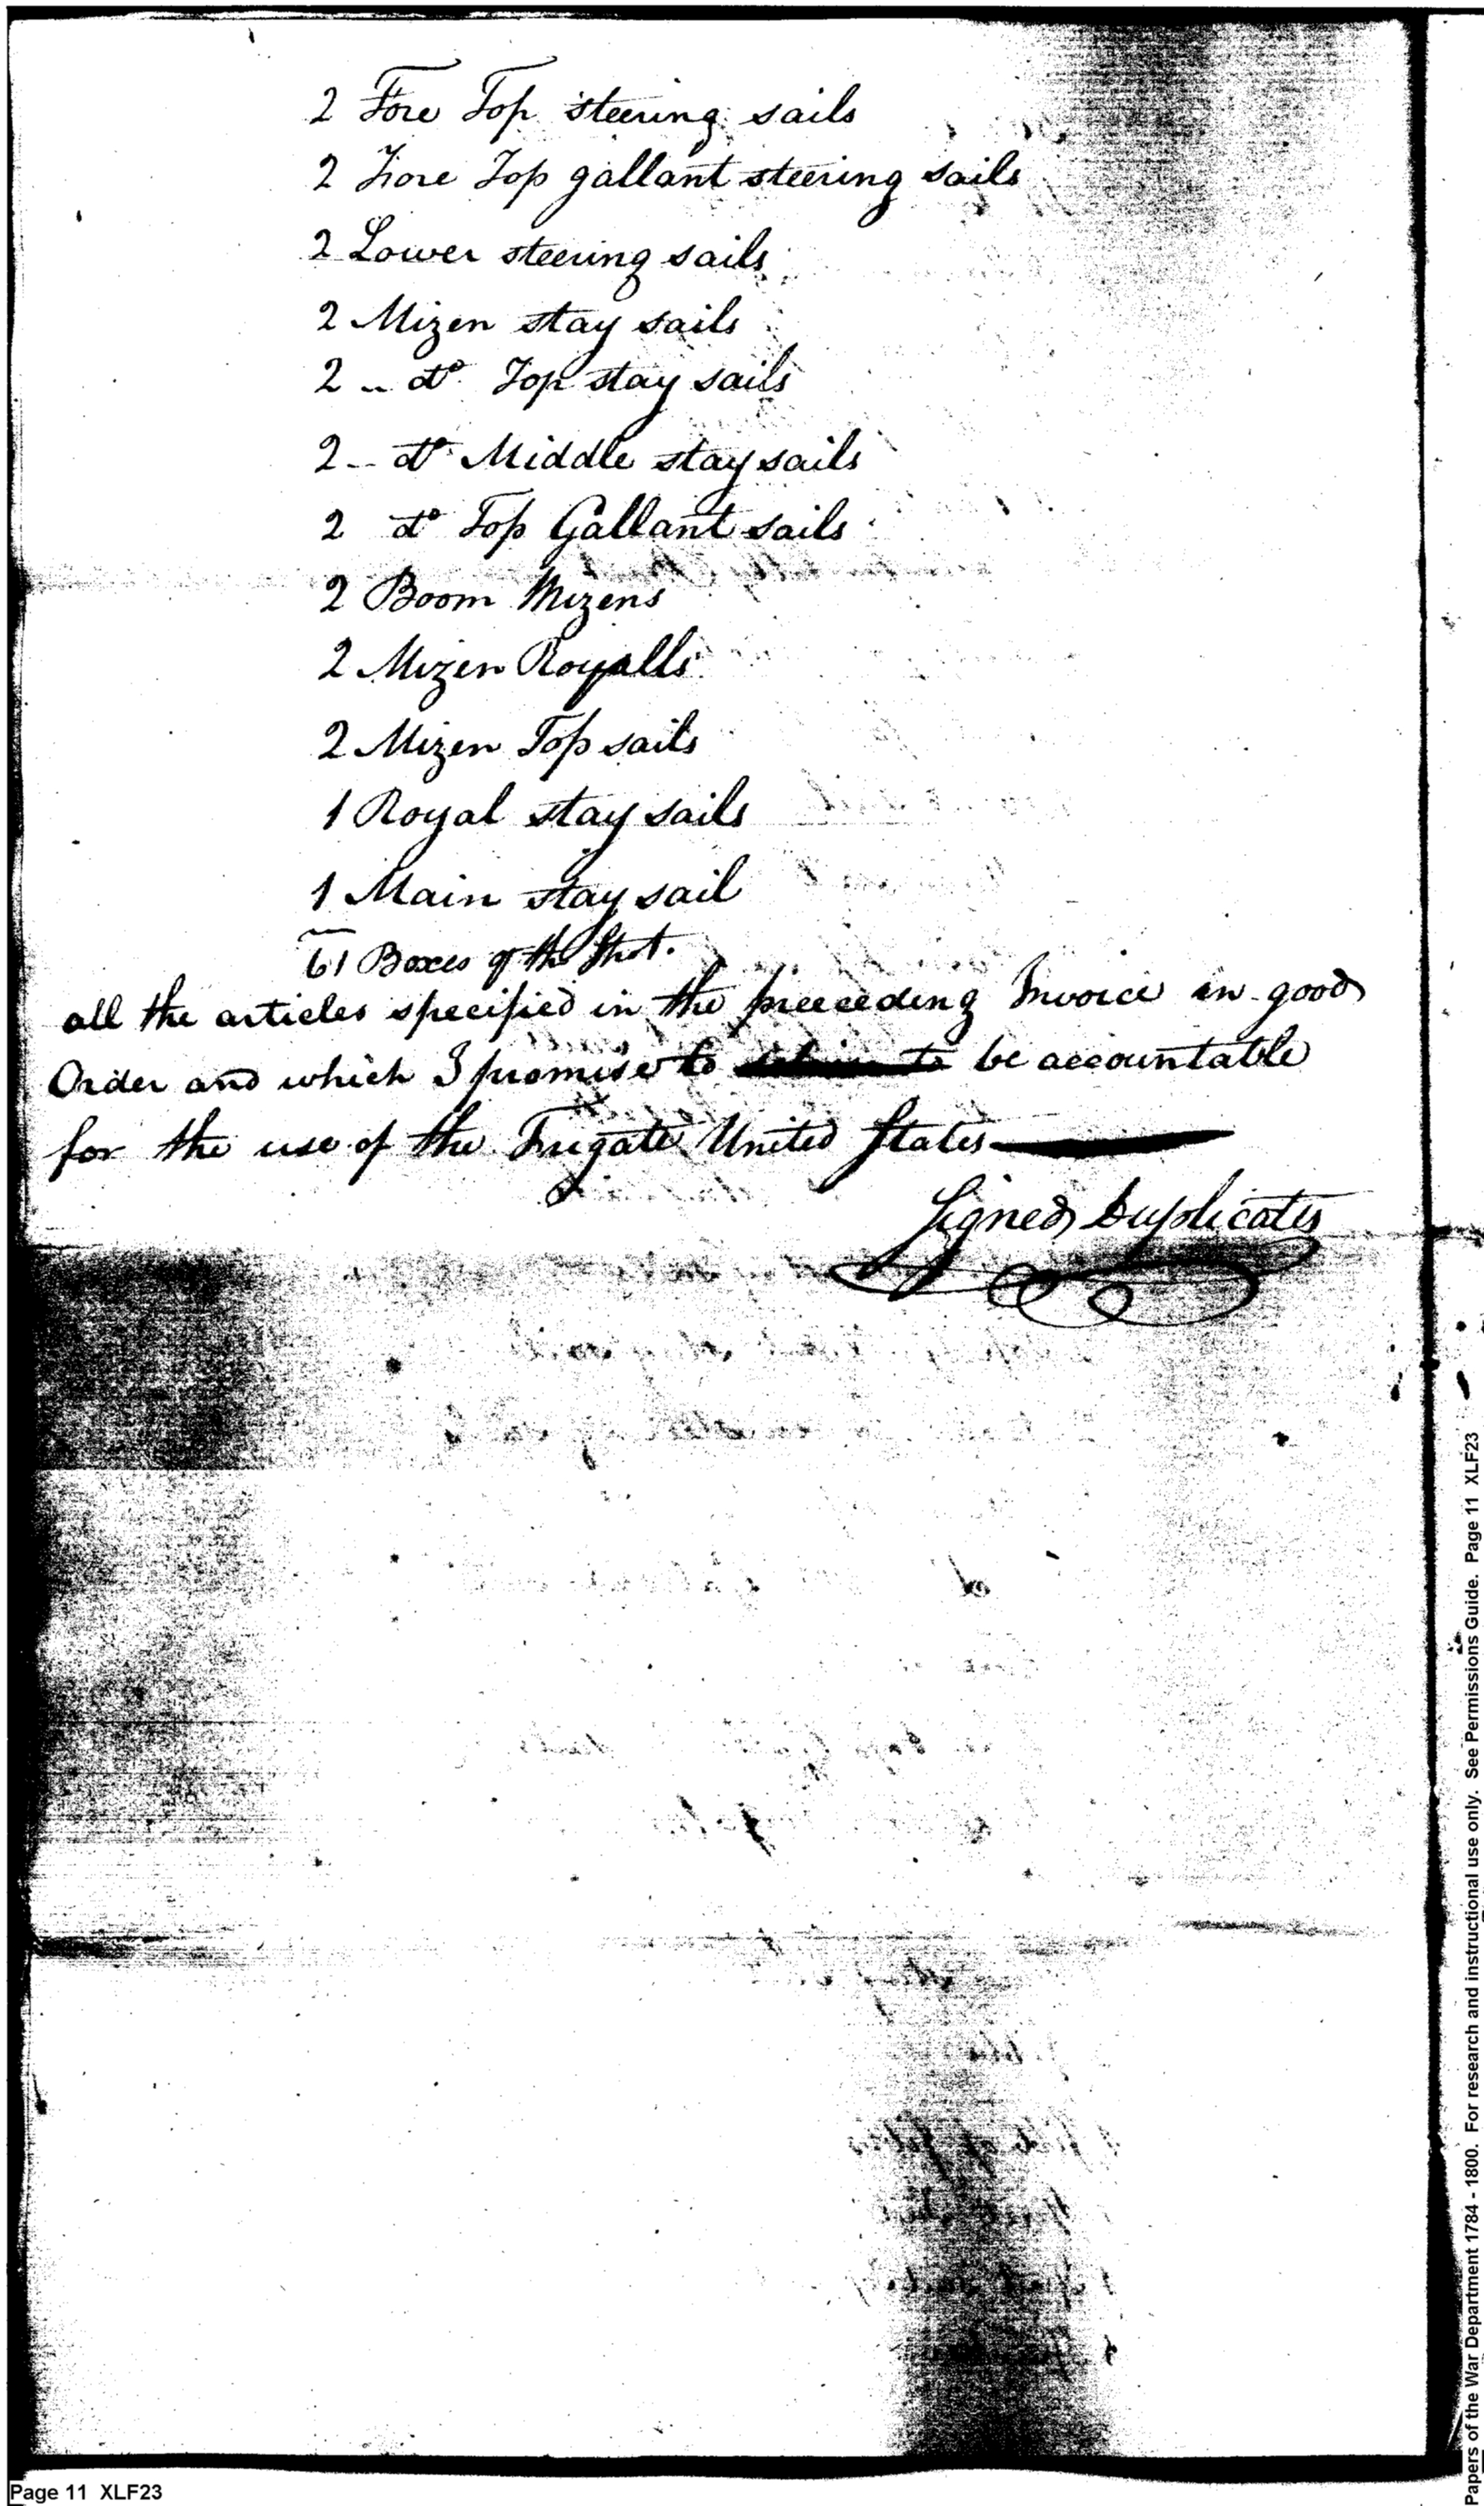 2 Fore Top steering sails
2 Fore Top gallant steering sails
2 Lower steering sails
2 Mizen stay sails
2 -- do Top stay sails
2 -- do Middle stay sails
2 do Top Gallant sails
2 Boom Mizens
2 Mizen Royalls
2 Mizen Top sails
1 Royal stay sails
1 Main stay sail
61 Boxes of Shot.
all the articles specified in the preceeding Invoice in good
Order and which I promise to be accountable
for the use of the Frigate United States
Signed Duplicates
Page 11 XLF23
Papers of the War Department 1784 - 1800. For research and instructional use only. See Permissions Guide. Page 11 XLF23